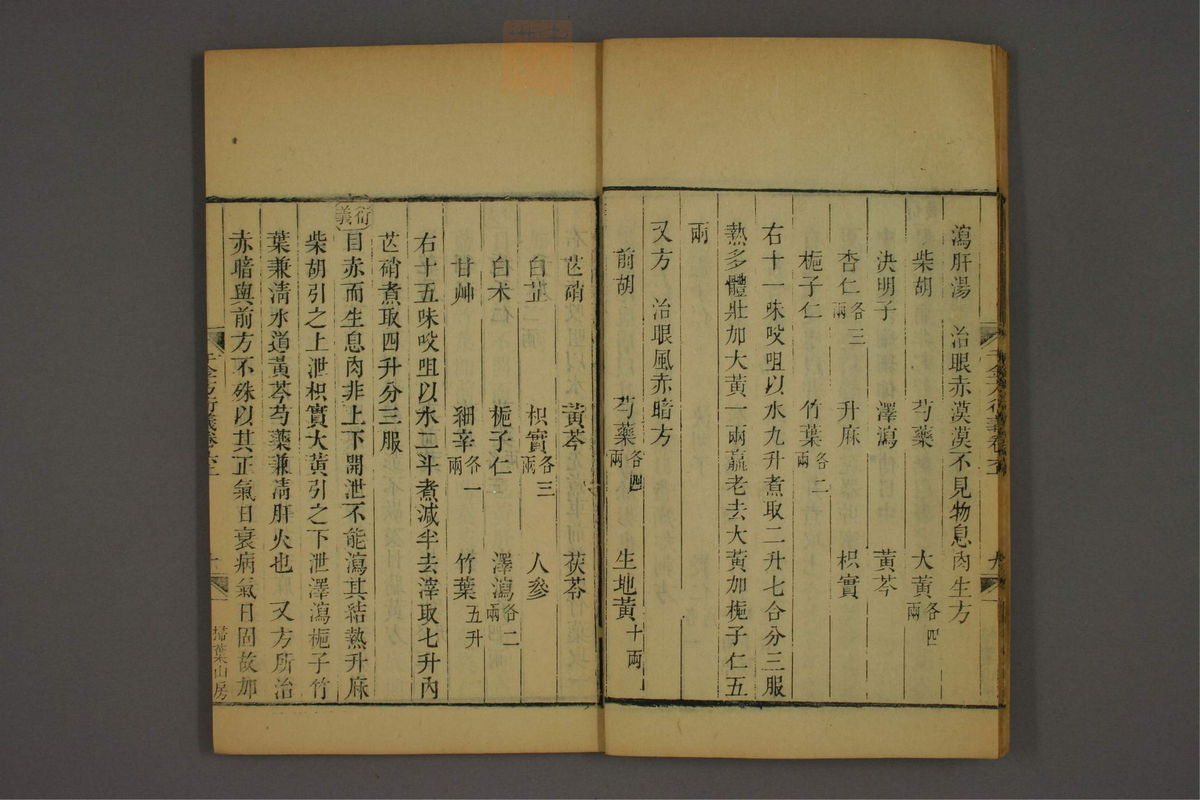 瀉肝湯 治眼赤漠漠不見物息肉生方
柴胡 芍藥 大黃各四兩
決明子 澤瀉 黃芩
杏仁各三兩 升麻 枳實
梔子仁 竹葉各二兩
右十一味㕮咀以水九升煮取二升七合分三服
熱多體壯加大黃一兩羸老去大黃加梔子仁五
兩
又方 治眼風赤暗方
前胡 芍藥各四兩 生地黃十兩
芒硝 黃芩 茯苓
白芷 枳實各三兩 人參
白朮 梔子仁 澤瀉各二兩
甘艸 細辛各一兩 竹葉五升
右十五味㕮咀以水二斗煮減半去滓取七升內
芒硝煮取四升分三服
衍義 目赤而生息肉非上下開泄不能瀉其結熱升麻
柴胡引之上泄枳實大黃引之下泄澤瀉梔子竹
葉兼清水道黃芩芍藥兼清肝火也 又方所治
赤暗與前方不殊以其正氣日衰病氣日固故加
千金方衍義卷六上
掃葉山房